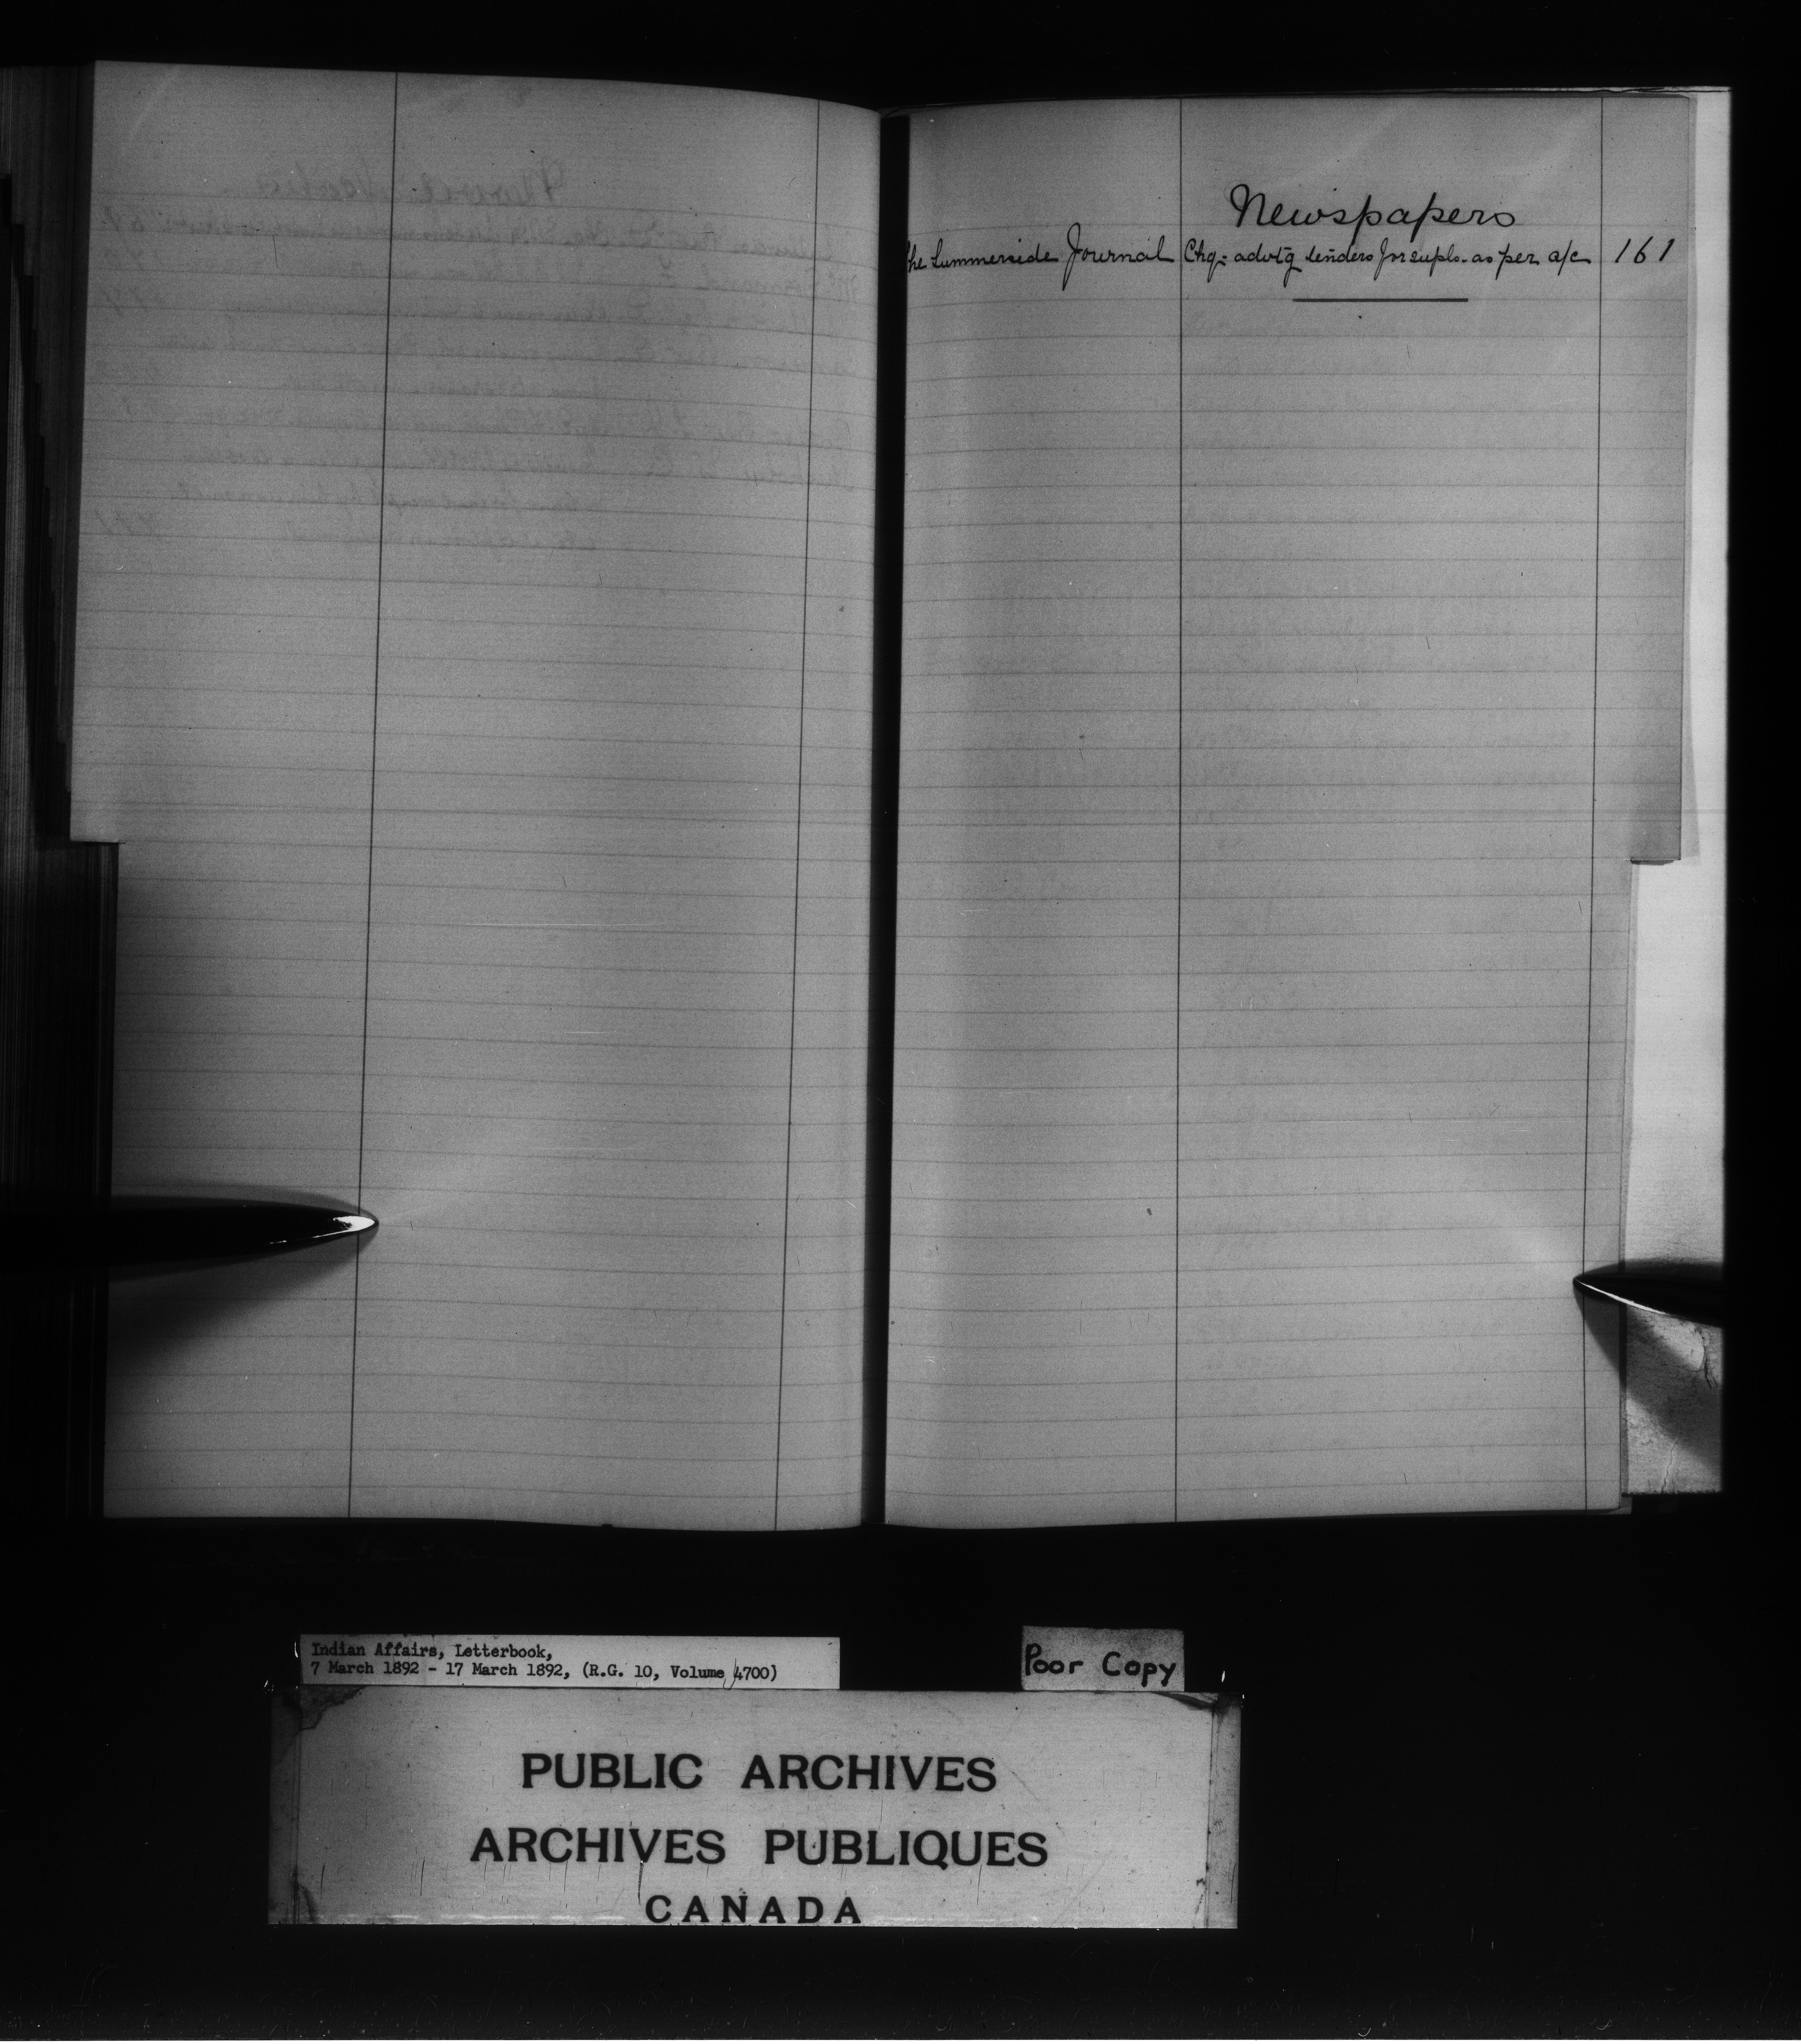 Newspapers
The Summerside Journal Chq- advtg tenders for supls. as per a/c 161
Indian Affairs, Letterbook,
7 March 1892 - 17 March 1892, (R.G. 10, Volume 4700)
Poor Copy
PUBLIC ARCHIVES
ARCHIVES PUBLIQUES
CANADA